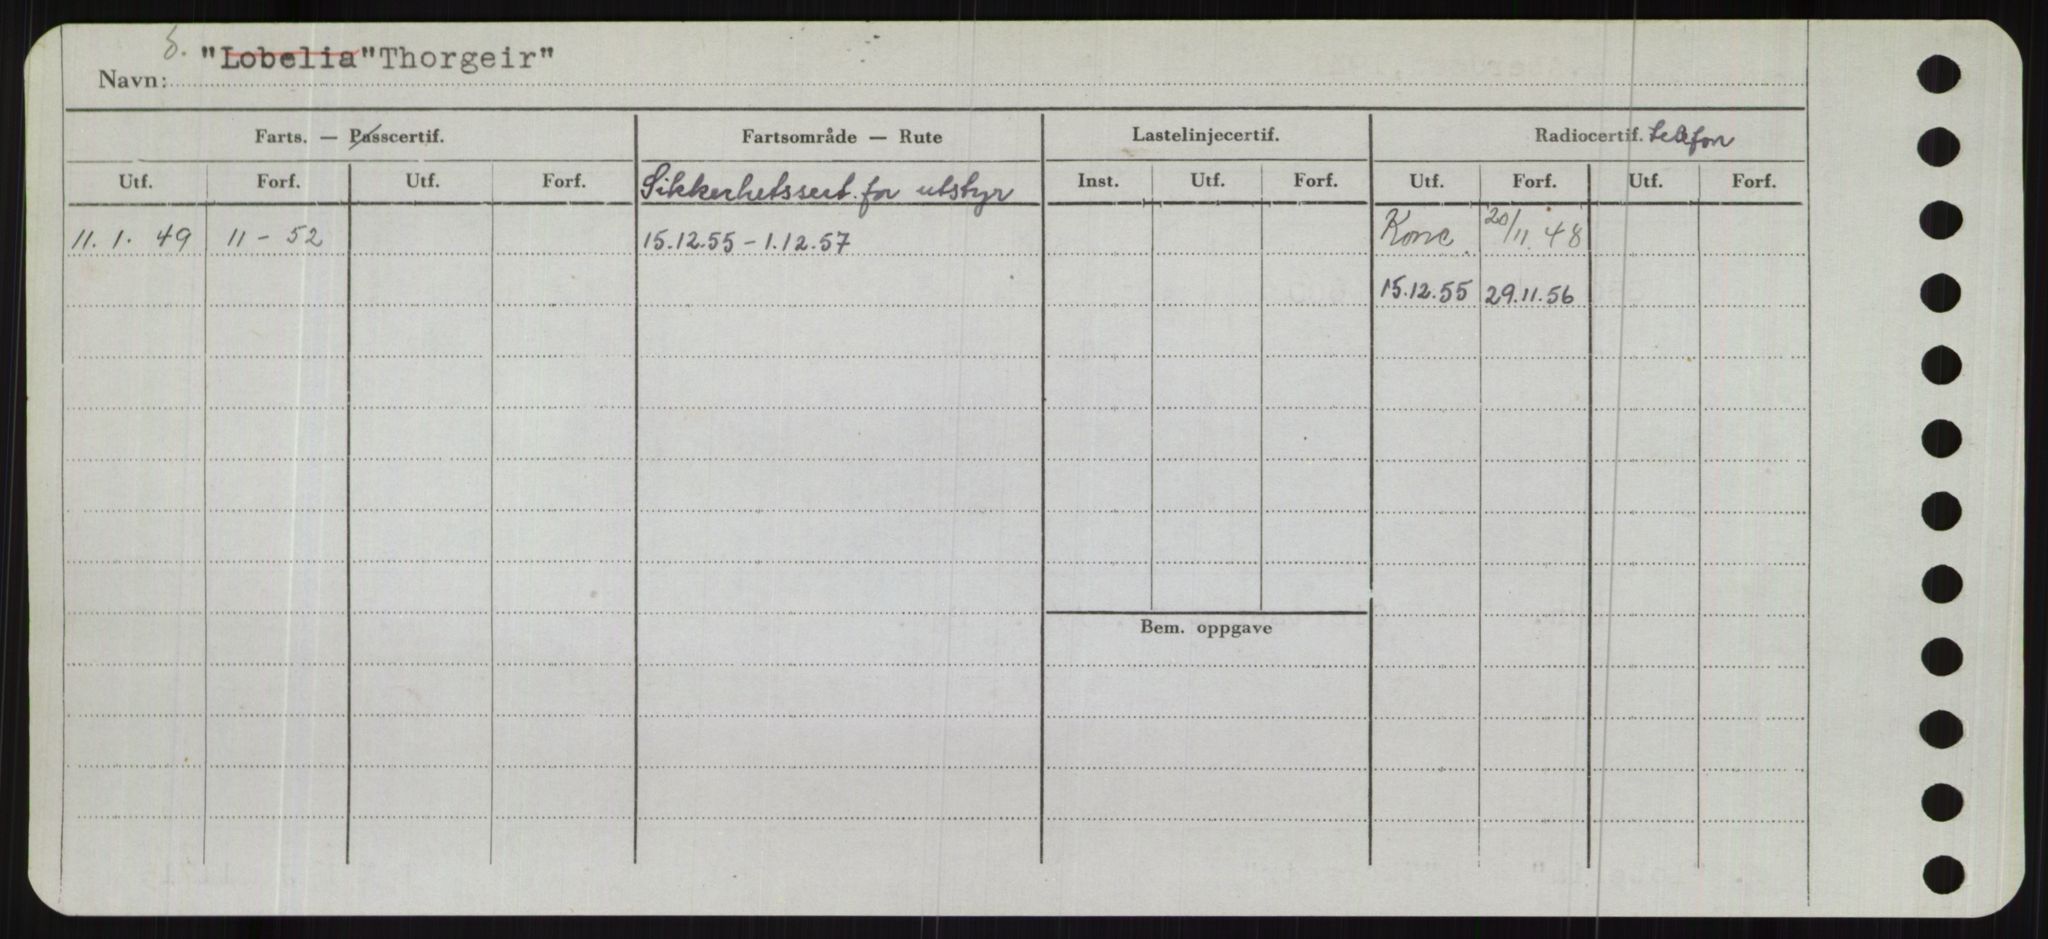 "Lobelia" "Thorgeir"
Navn:
Farts. — Passcertif. Fartsområde — Rute Lastelinjecertif. Radiocertif. telefon
Utf. Forf. Utf. Forf. Sikkerhetssert. for utstyr Inst. Utf. Forf. Utf. Forf. Utf. Forf.
11. 1. 49 11 - 52 15.12.55 - 1.12.57 20/11.48
15.12.55 29.11.56
Bem. oppgave